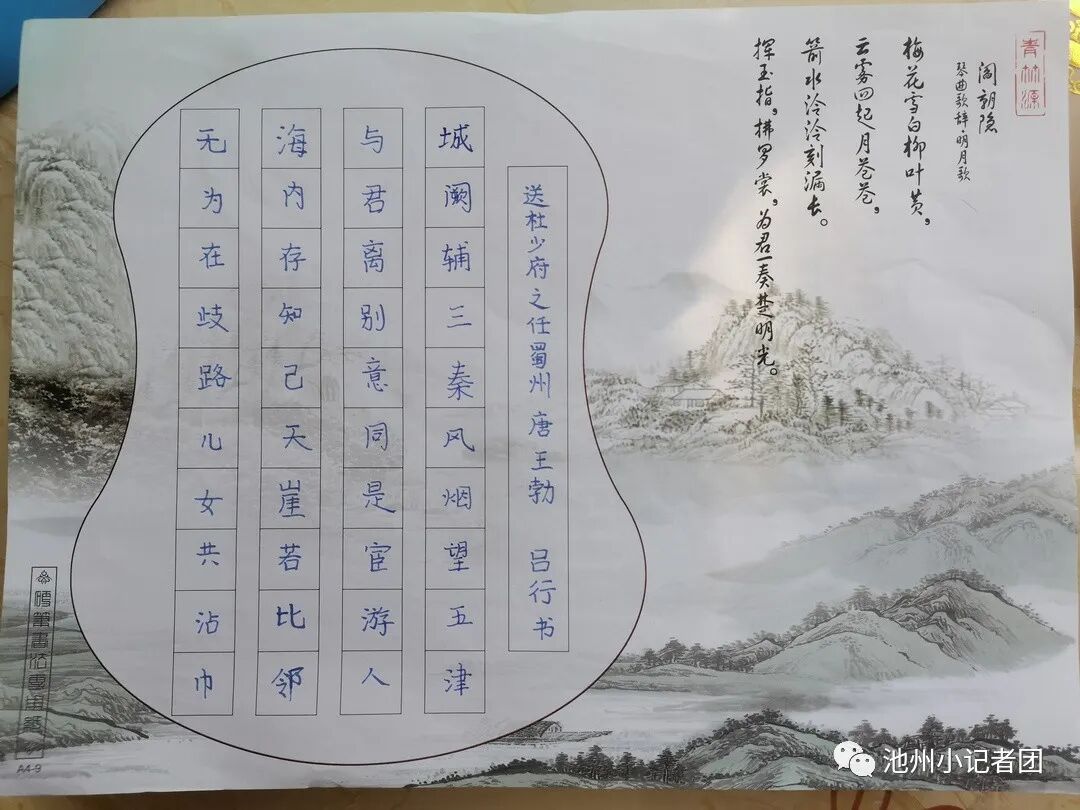 青林源
阎朝隐
琴曲歌辞·明月歌
梅花雪白柳叶黄，
云雾四起月苍苍，
箭水泠泠刻漏长。
挥玉指，拂罗裳，为君一奏楚明光。
送杜少府之任蜀州 唐 王勃 吕行书
城阙辅三秦风烟望五津
与君离别意同是宦游人
海内存知己天崖若比邻
无为在歧路儿女共沾巾
硬笔书法专用纸
A4-9
池州小记者团